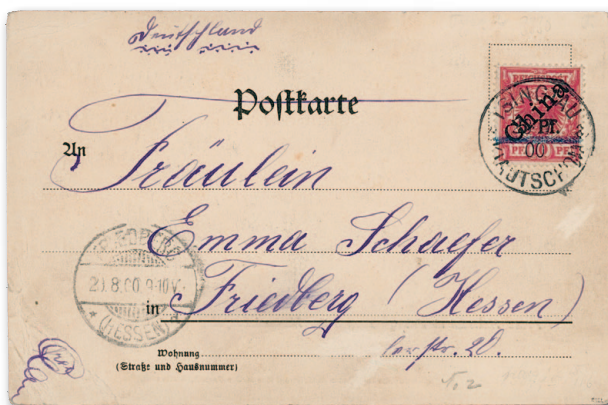 Deutschland
Postkarte
China
5 Pf.
TSINGTAU
00
KIAUTSCHOU
An Fräulein
Emma Schaefer
FRIEDBERG
8.00 9-10V.
(HESSEN)
in Friedberg (Hessen)
Wohnung
(Straße und Hausnummer)
str. 20.